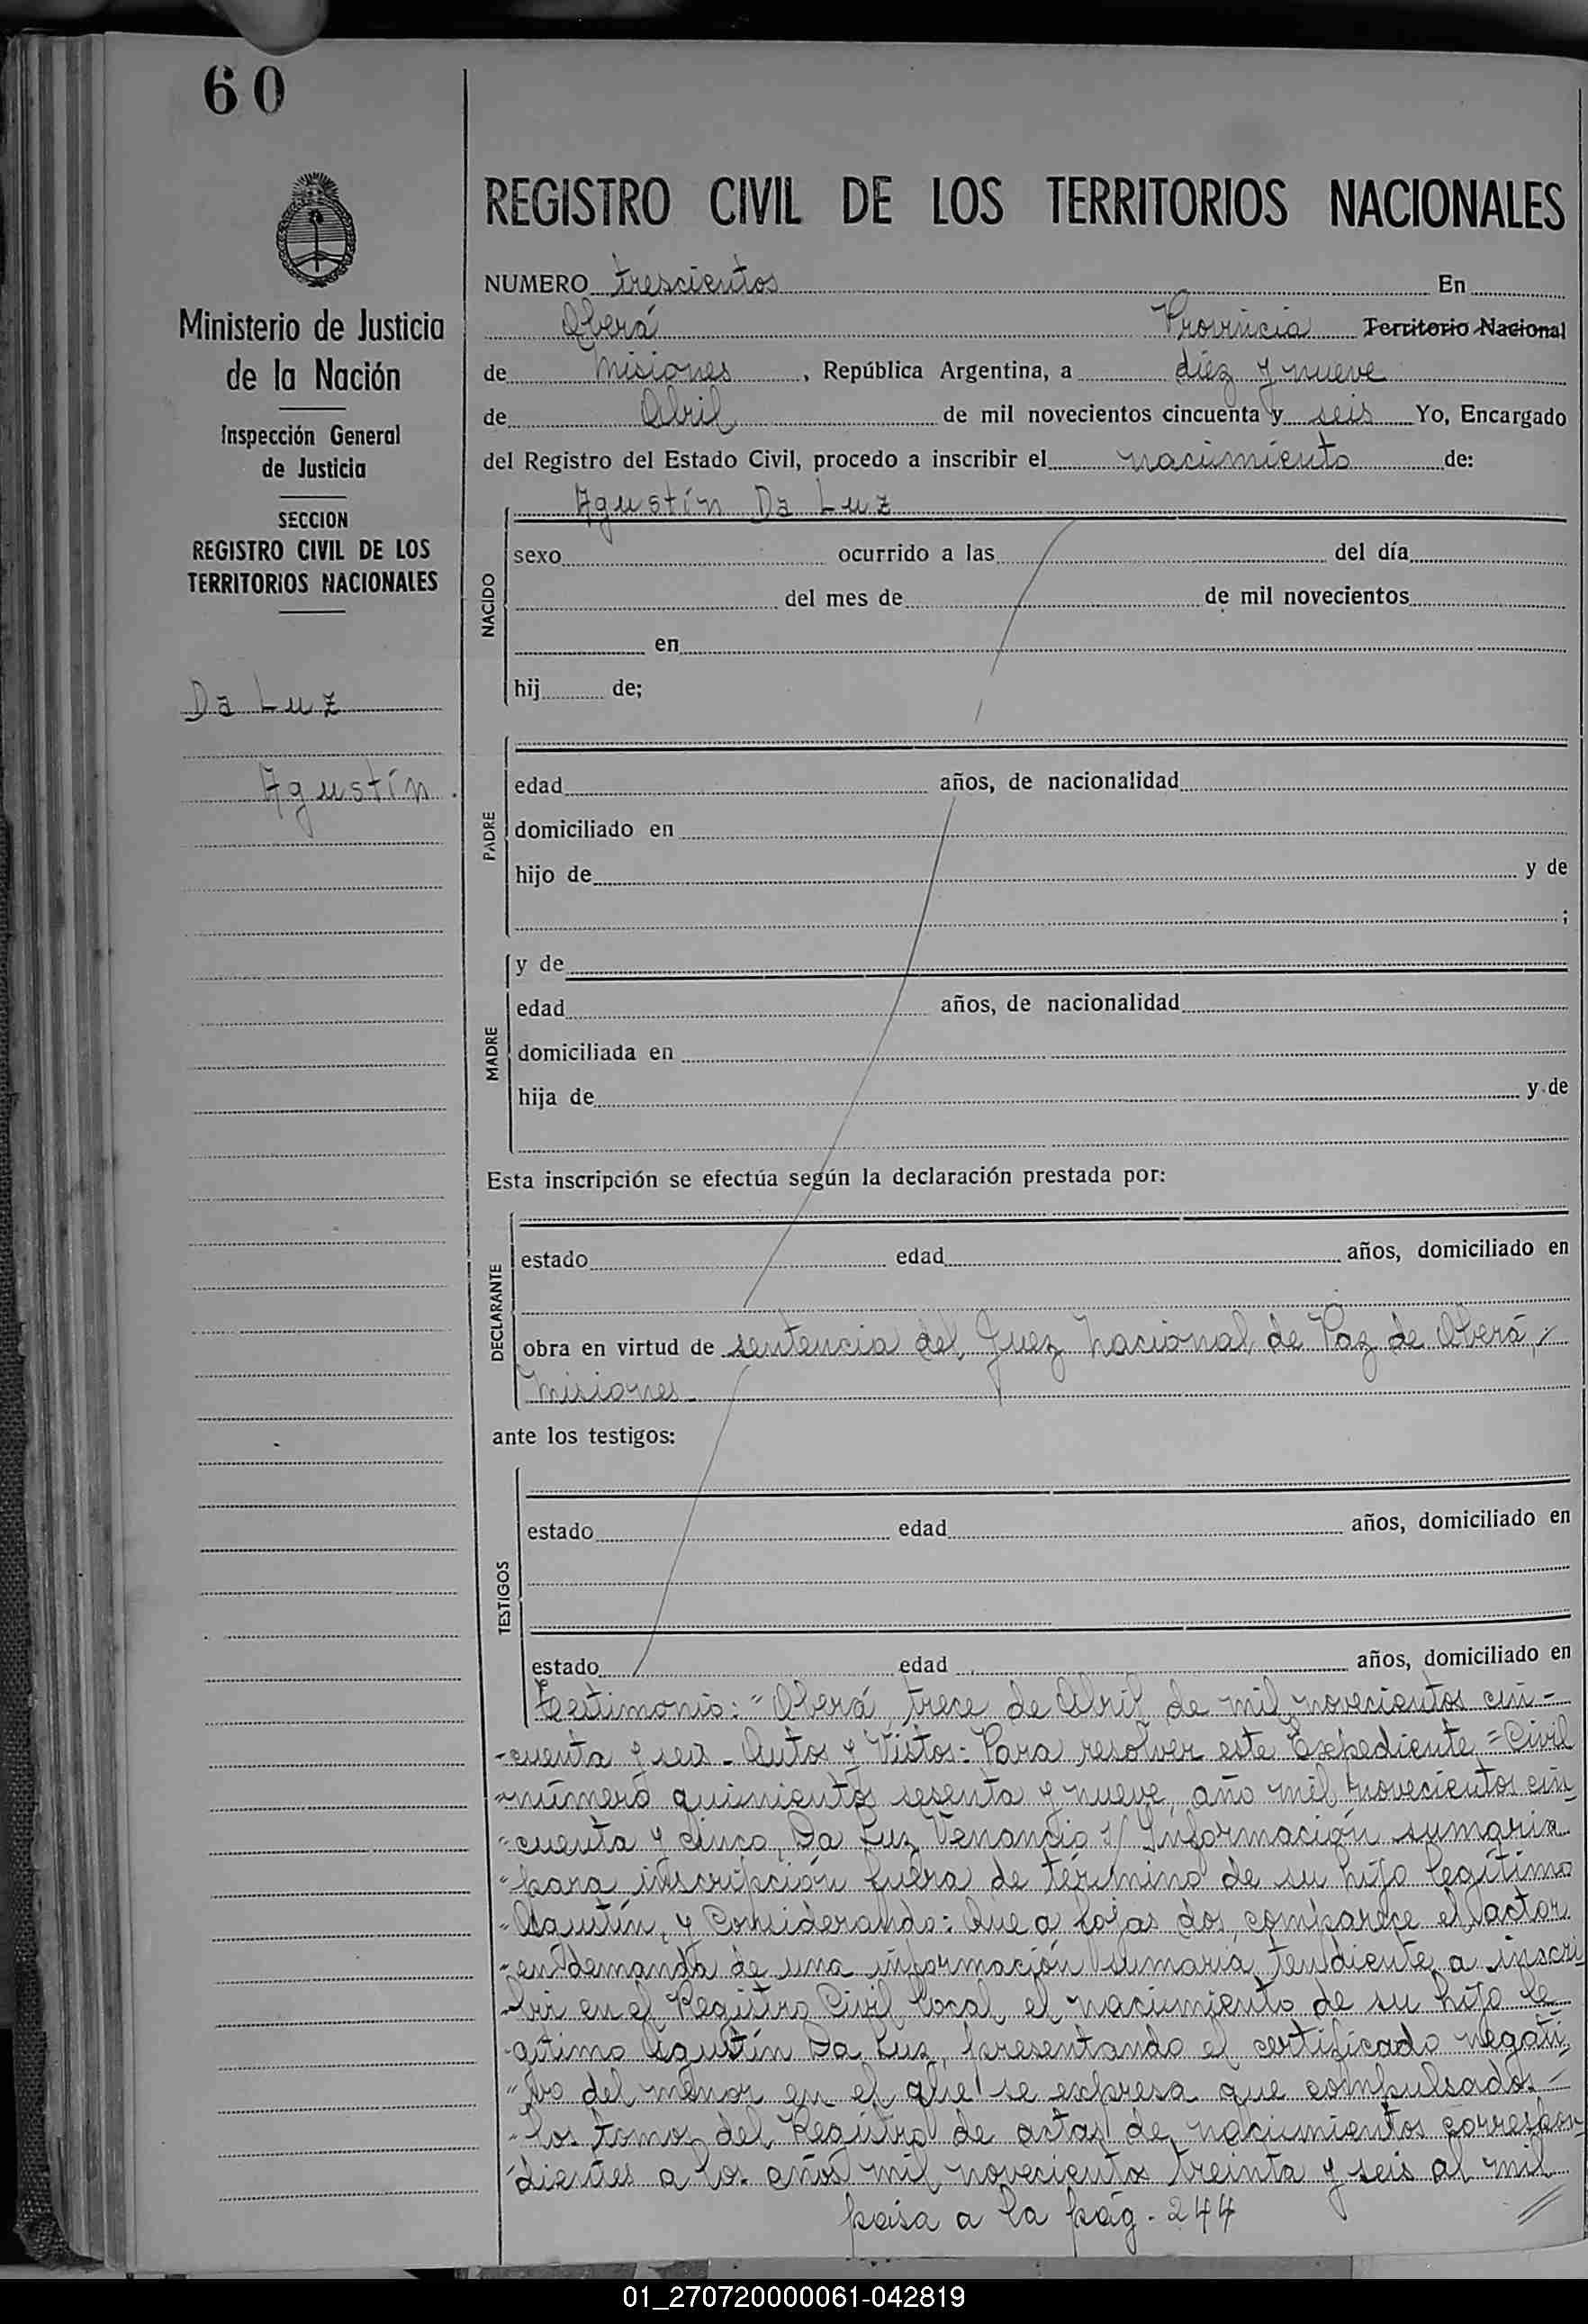 60
REGISTRO CIVIL DE LOS TERRITORIOS NACIONALES
NUMERO trescientos En
Oberá Provincia Territorio Nacional
de Misiones, República Argentina, a diez y nueve
de Abril de mil novecientos cincuenta y seis Yo, Encargado
del Registro del Estado Civil, procedo a inscribir el nacimiento de:
Agustín Da Luz
Ministerio de Justicia
de la Nación
Inspección General
de Justicia
SECCION
REGISTRO CIVIL DE LOS
TERRITORIOS NACIONALES
Da Luz
Agustín.
NACIDO
sexo ocurrido a las del día
del mes de de mil novecientos
en
hij de;
PADRE
edad años, de nacionalidad
domiciliado en
hijo de y de
;
MADRE
y de
edad años, de nacionalidad
domiciliada en
hija de y de
Esta inscripción se efectúa según la declaración prestada por:
DECLARANTE
estado edad años, domiciliado en
obra en virtud de sentencia del Juez Nacional de Paz de Oberá,
Misiones.
ante los testigos:
TESTIGOS
estado edad años, domiciliado en
estado edad años, domiciliado en
Testimonio: "Oberá, trece de Abril de mil novecientos cin-
-cuenta y seis - Autos y Vistos: Para resolver este Expediente = Civil
"número quinientos sesenta y nueve, año mil novecientos cin
"cuenta y cinco, Da Luz Venancio s/ Información sumaria
"para inscripción fuera de término de su hijo legítimo
"Agustín, y Considerando: Que a fojas dos, comparece el actor
"en demanda de una información sumaria tendiente a inscri
"bir en el Registro Civil local, el nacimiento de su hijo le
"gítimo Agustín Da Luz, presentando el certificado negati
"vo del menor en el que se expresa que compulsados -
"los tomos del Registro de actas de nacimientos correspon
"dientes a los años mil novecientos treinta y seis al mil
pasa a la pág. 244
01_270720000061-042819